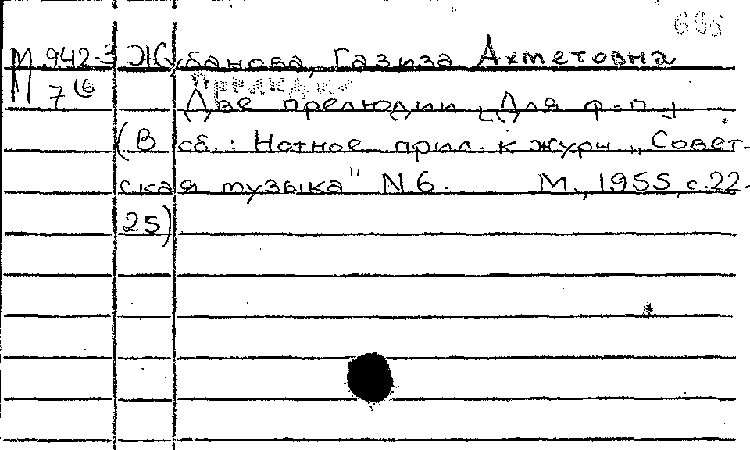 695
М 942-3 Жубанова, Газиза Ахметовна
7(6 Прелюдии
Две прелюдии [Для ф-п.]
(В сб.: Нотное прил. к журн. „Совет-
ская музыка" N 6. М., 1955, с. 22-
25)